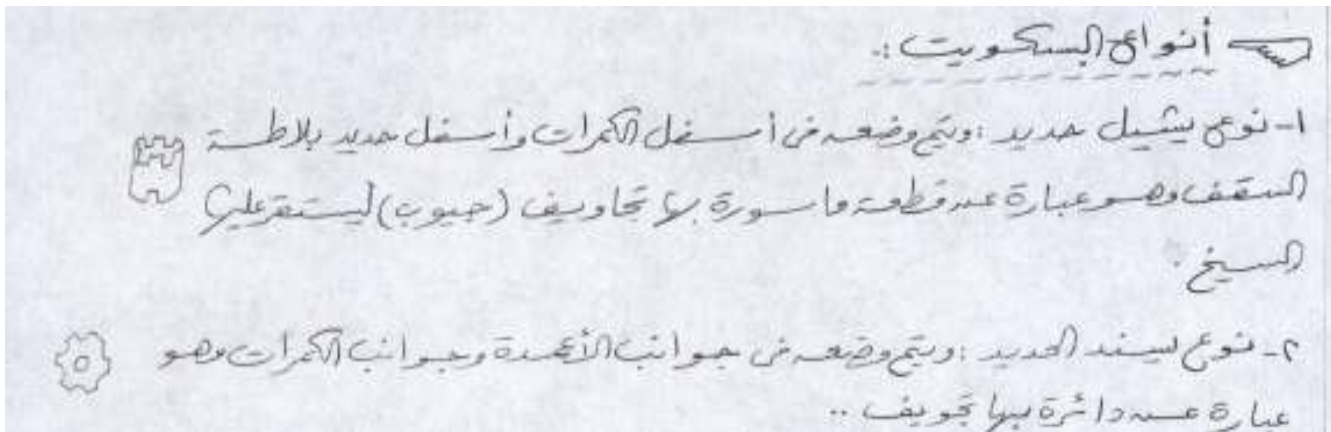 أنواع البسكويت :.
١- نوع يشيل حديد : ويتم وضعه فى أسفل الكمرات وأسفل حديد بلاطة
السقف وهو عبارة عن قطعة ماسورة بها تجاويف (جيوب) ليستقر عليها
السيخ .
٢- نوع يسند الحديد : ويتم وضعه فى جوانب الأعمدة وجوانب الكمرات وهو
عبارة عن دائرة بها تجويف ..